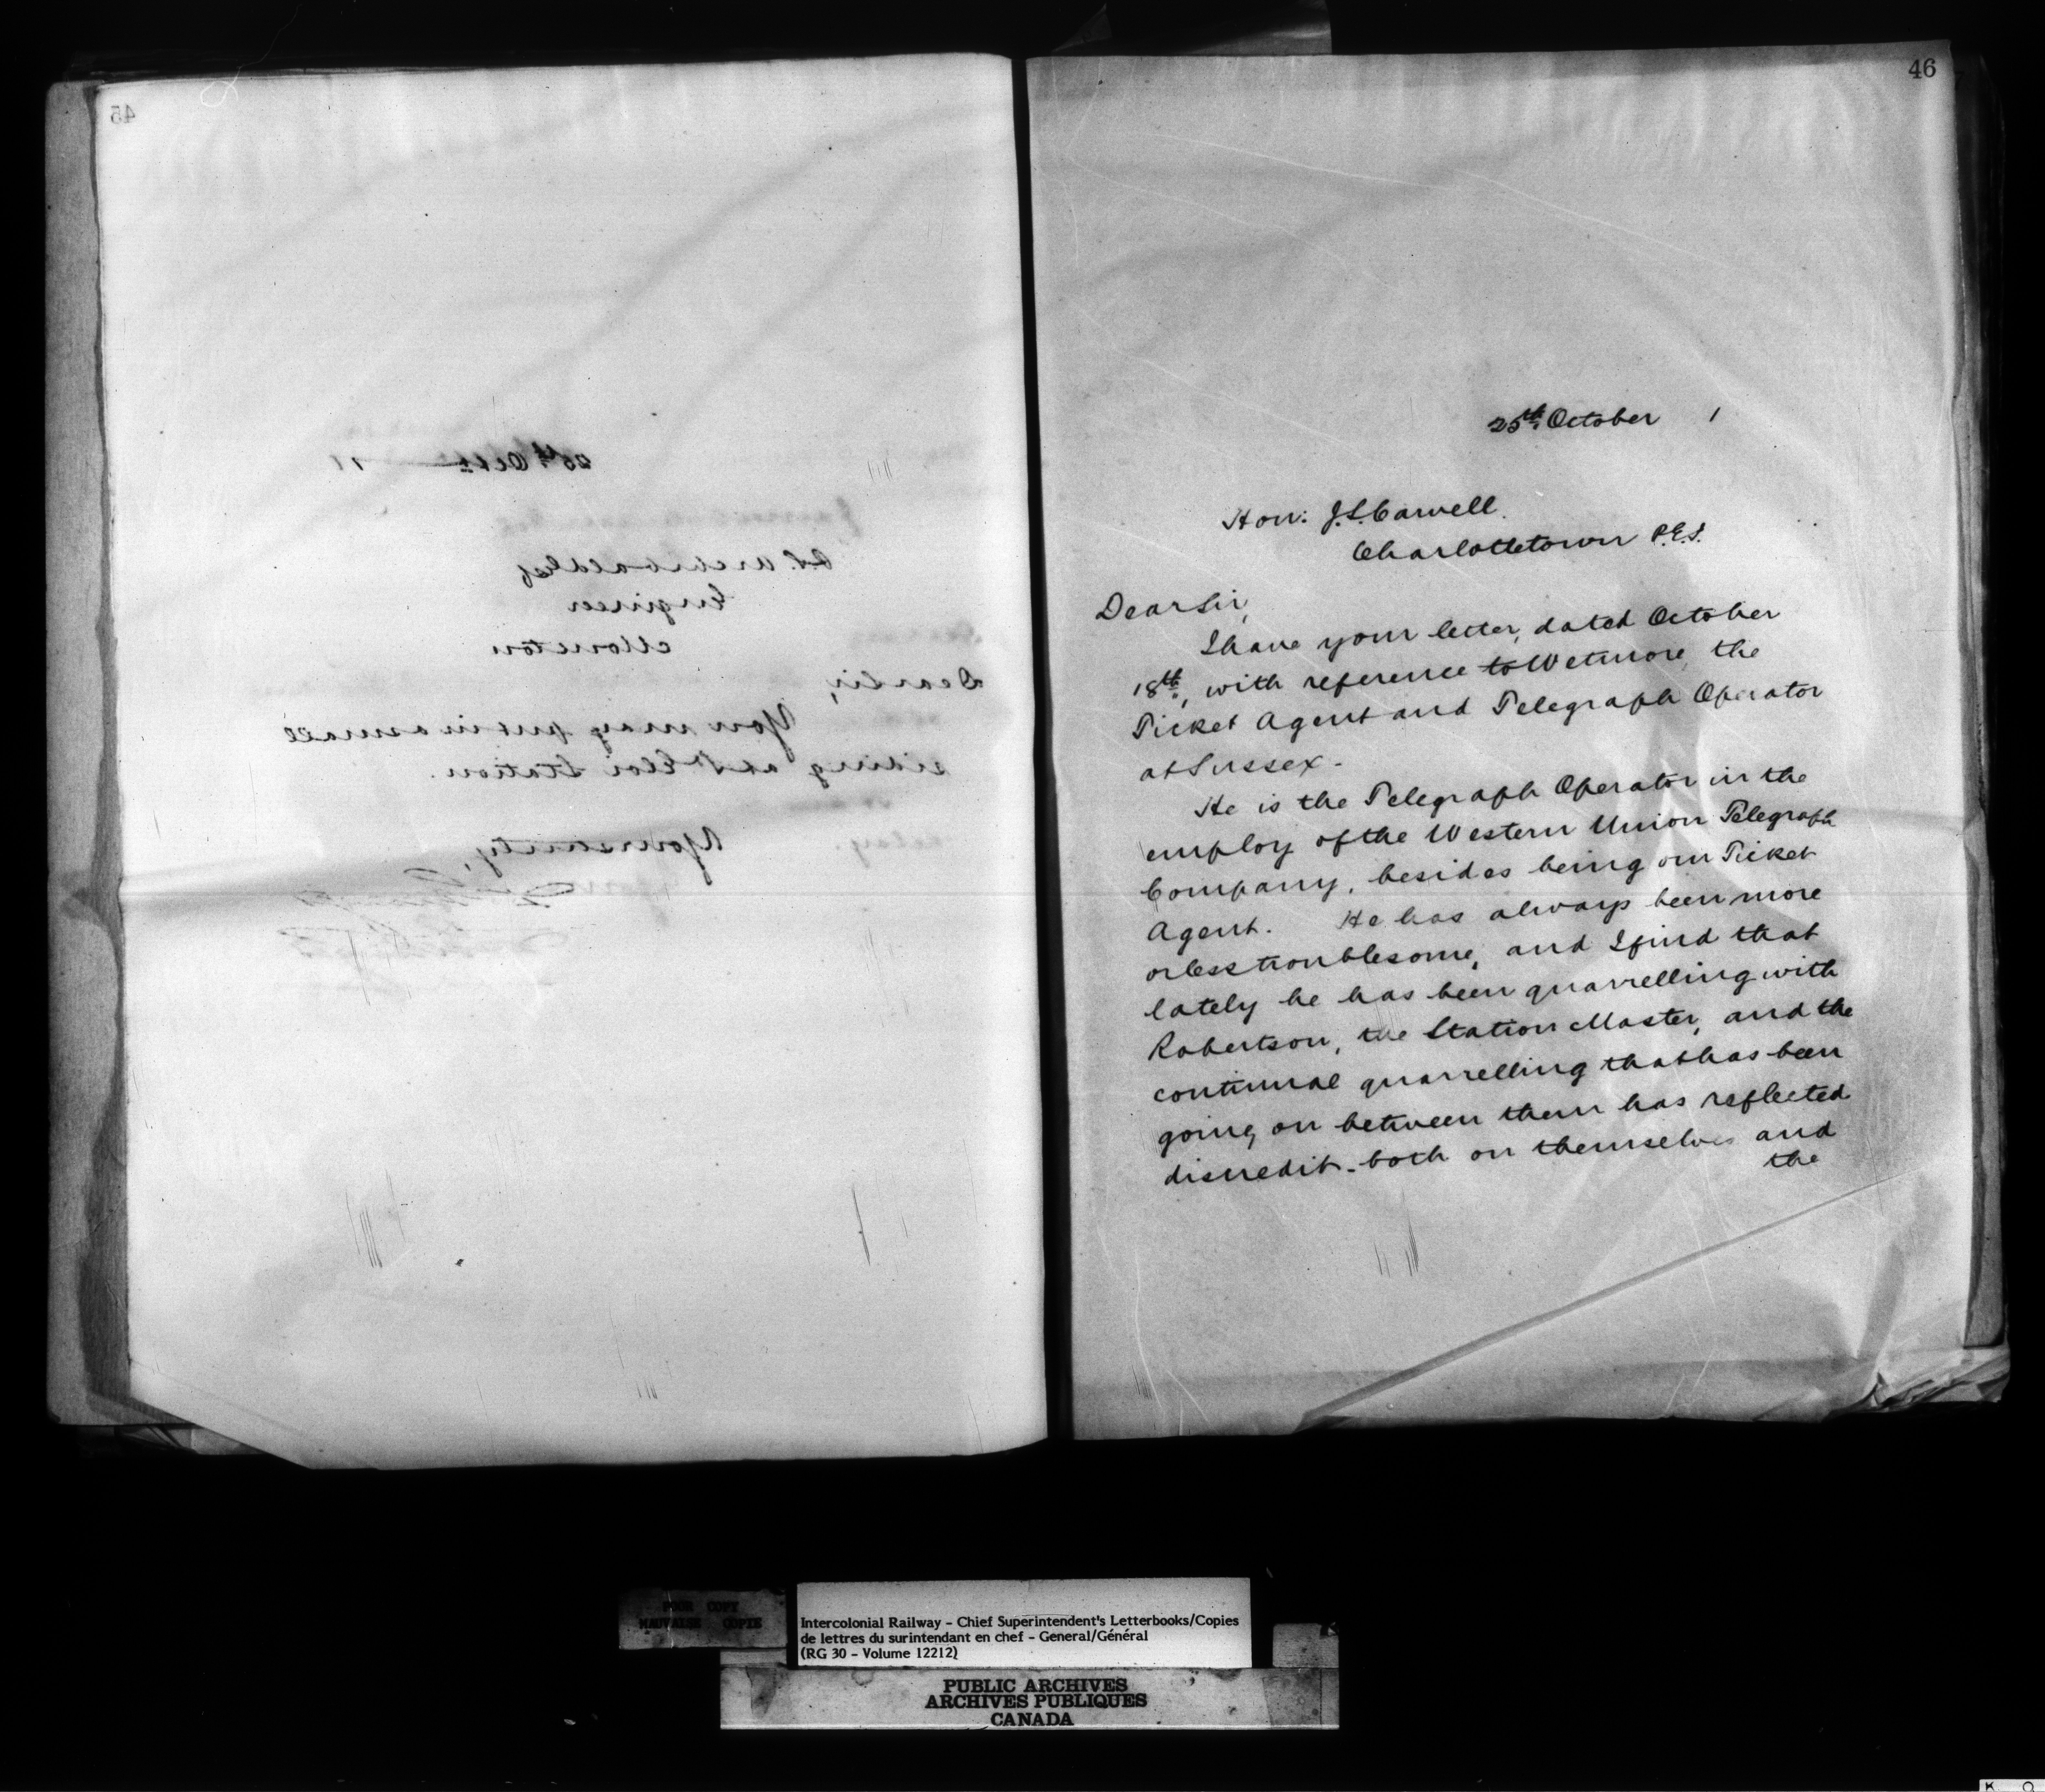 45
26th Octr 1
P.S. Archibald Esq
Engineer
Moncton
Dear Sir,
You may put in a small
siding at St Eloi Station.
Yours truly,
46
25th October 1
Hon: J.S. Carvell.
Charlottetown P.E.I.
Dear Sir,
I have your letter, dated October
18th, with reference to Wetmore, the
Ticket Agent and Telegraph Operator
at Sussex.
He is the Telegraph Operator in the
employ of the Western Union Telegraph
Company, besides being our Ticket
Agent. He has always been more
or less troublesome, and I find that
lately he has been quarrelling with
Robertson, the Station Master, and the
continual quarrelling that has been
going on between them has reflected
discredit both on themselves and
the
POOR COPY
MAUVAISE COPIE
Intercolonial Railway - Chief Superintendent's Letterbooks/Copies
de lettres du surintendant en chef - General/Général
(RG 30 - Volume 12212)
PUBLIC ARCHIVES
ARCHIVES PUBLIQUES
CANADA